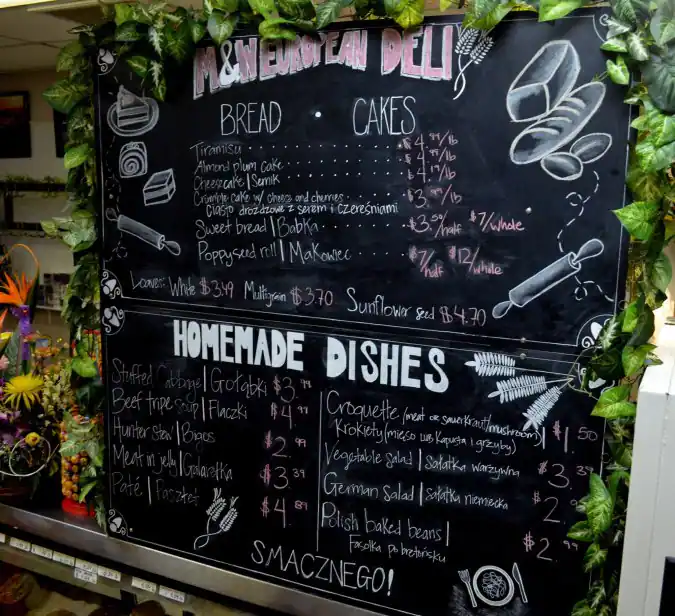 M&N EUROPEAN DELI
BREAD • CAKES
Tiramisu $4.99/lb
Almond plum cake $4.99/lb
Cheesecake | Sernik $4.19/lb
Crumble cake w/ cheese and cherries $3.99/lb
Ciasto drożdżowe z serem i czereśniami
Sweet bread | Babka $3.50/half $7/whole
Poppyseed roll | Makowiec $7/half $12/whole
Loaves: White $3.49 Multigrain $3.70 Sunflower seed $4.70
HOMEMADE DISHES
Stuffed Cabbage | Gołąbki $3.99
Beef tripe soup | Flaczki $4.99
Hunter stew | Bigos $2.99
Meat in jelly | Galaretka $3.39
Paté | Pasztet $4.89
Croquette (meat or sauerkraut/mushroom) $1.50
Krokiety (mięso lub kapusta i grzyby)
Vegetable salad | sałatka warzywna $3.39
German salad | sałatka niemiecka $2.
Polish baked beans | $2.99
Fasolka po bretońsku
SMACZNEGO!